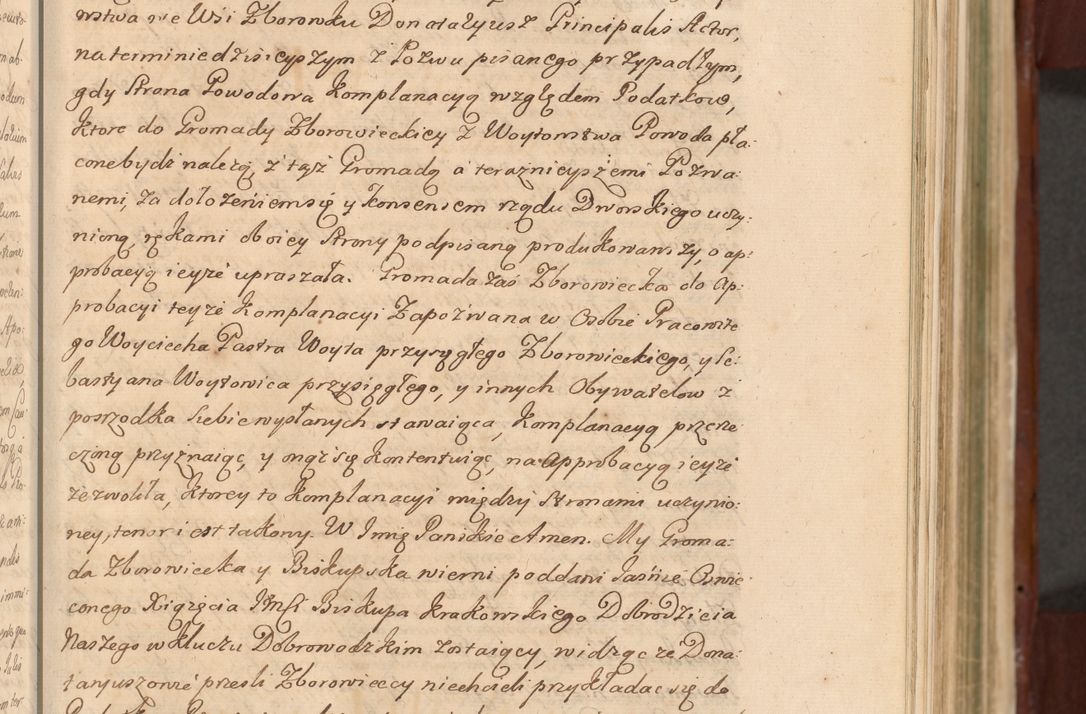 mstwa we Wsi Zborowku Donataryusz Principalis Actor,
na terminie dzisieyszym z Pozwu pisanego przypadłym,
gdy Strona Powodowa Komplanacyą względem Podatkow,
ktore do Gromady Zborowieckiey z Woytomstwa Powoda pła:
cone bydź należą, z tąż Gromadą a teraznieyszemi Pozwa:
nemi, za dołożeniem się y konsensem rządu Dworskiego uczy:
nioną, rękami oboiey Strony podpisaną produkowawszy, o ap:
probacyą ieyże upraszała. Gromada zaś Zborowiecka do Ap:
probacyi teyże Komplanacyi Zapozwana w Osobie Pracowite
go Woyciecha Pastra Woyta przysięgłego Zborowieckiego, y Se:
bastyana Woytowica przysięgłego, y innych Obywatelow z
posrzodka siebie wysłanych stawaiąca, Komplanacyą przerze
czoną przyznaiąc, y onąż się kontentuiąc, na Approbacyą ieyże
zezwoliła, ktorey to Komplanacyi między Stronami uczynio:
ney, tenor iest takowy. W Imię Pańskie Amen. My Groma:
da Zborowiecka y Biskupska wierni poddani Jaśnie Oswie
conego Xiążęcia Jmści Biskupa Krakowskiego Dobrodzieia
Naszego w kluczu Dobrowodzkim zostaiący, widząc że Dona:
taryuszowie przeszli Zborowieccy niechcieli przykładac się do